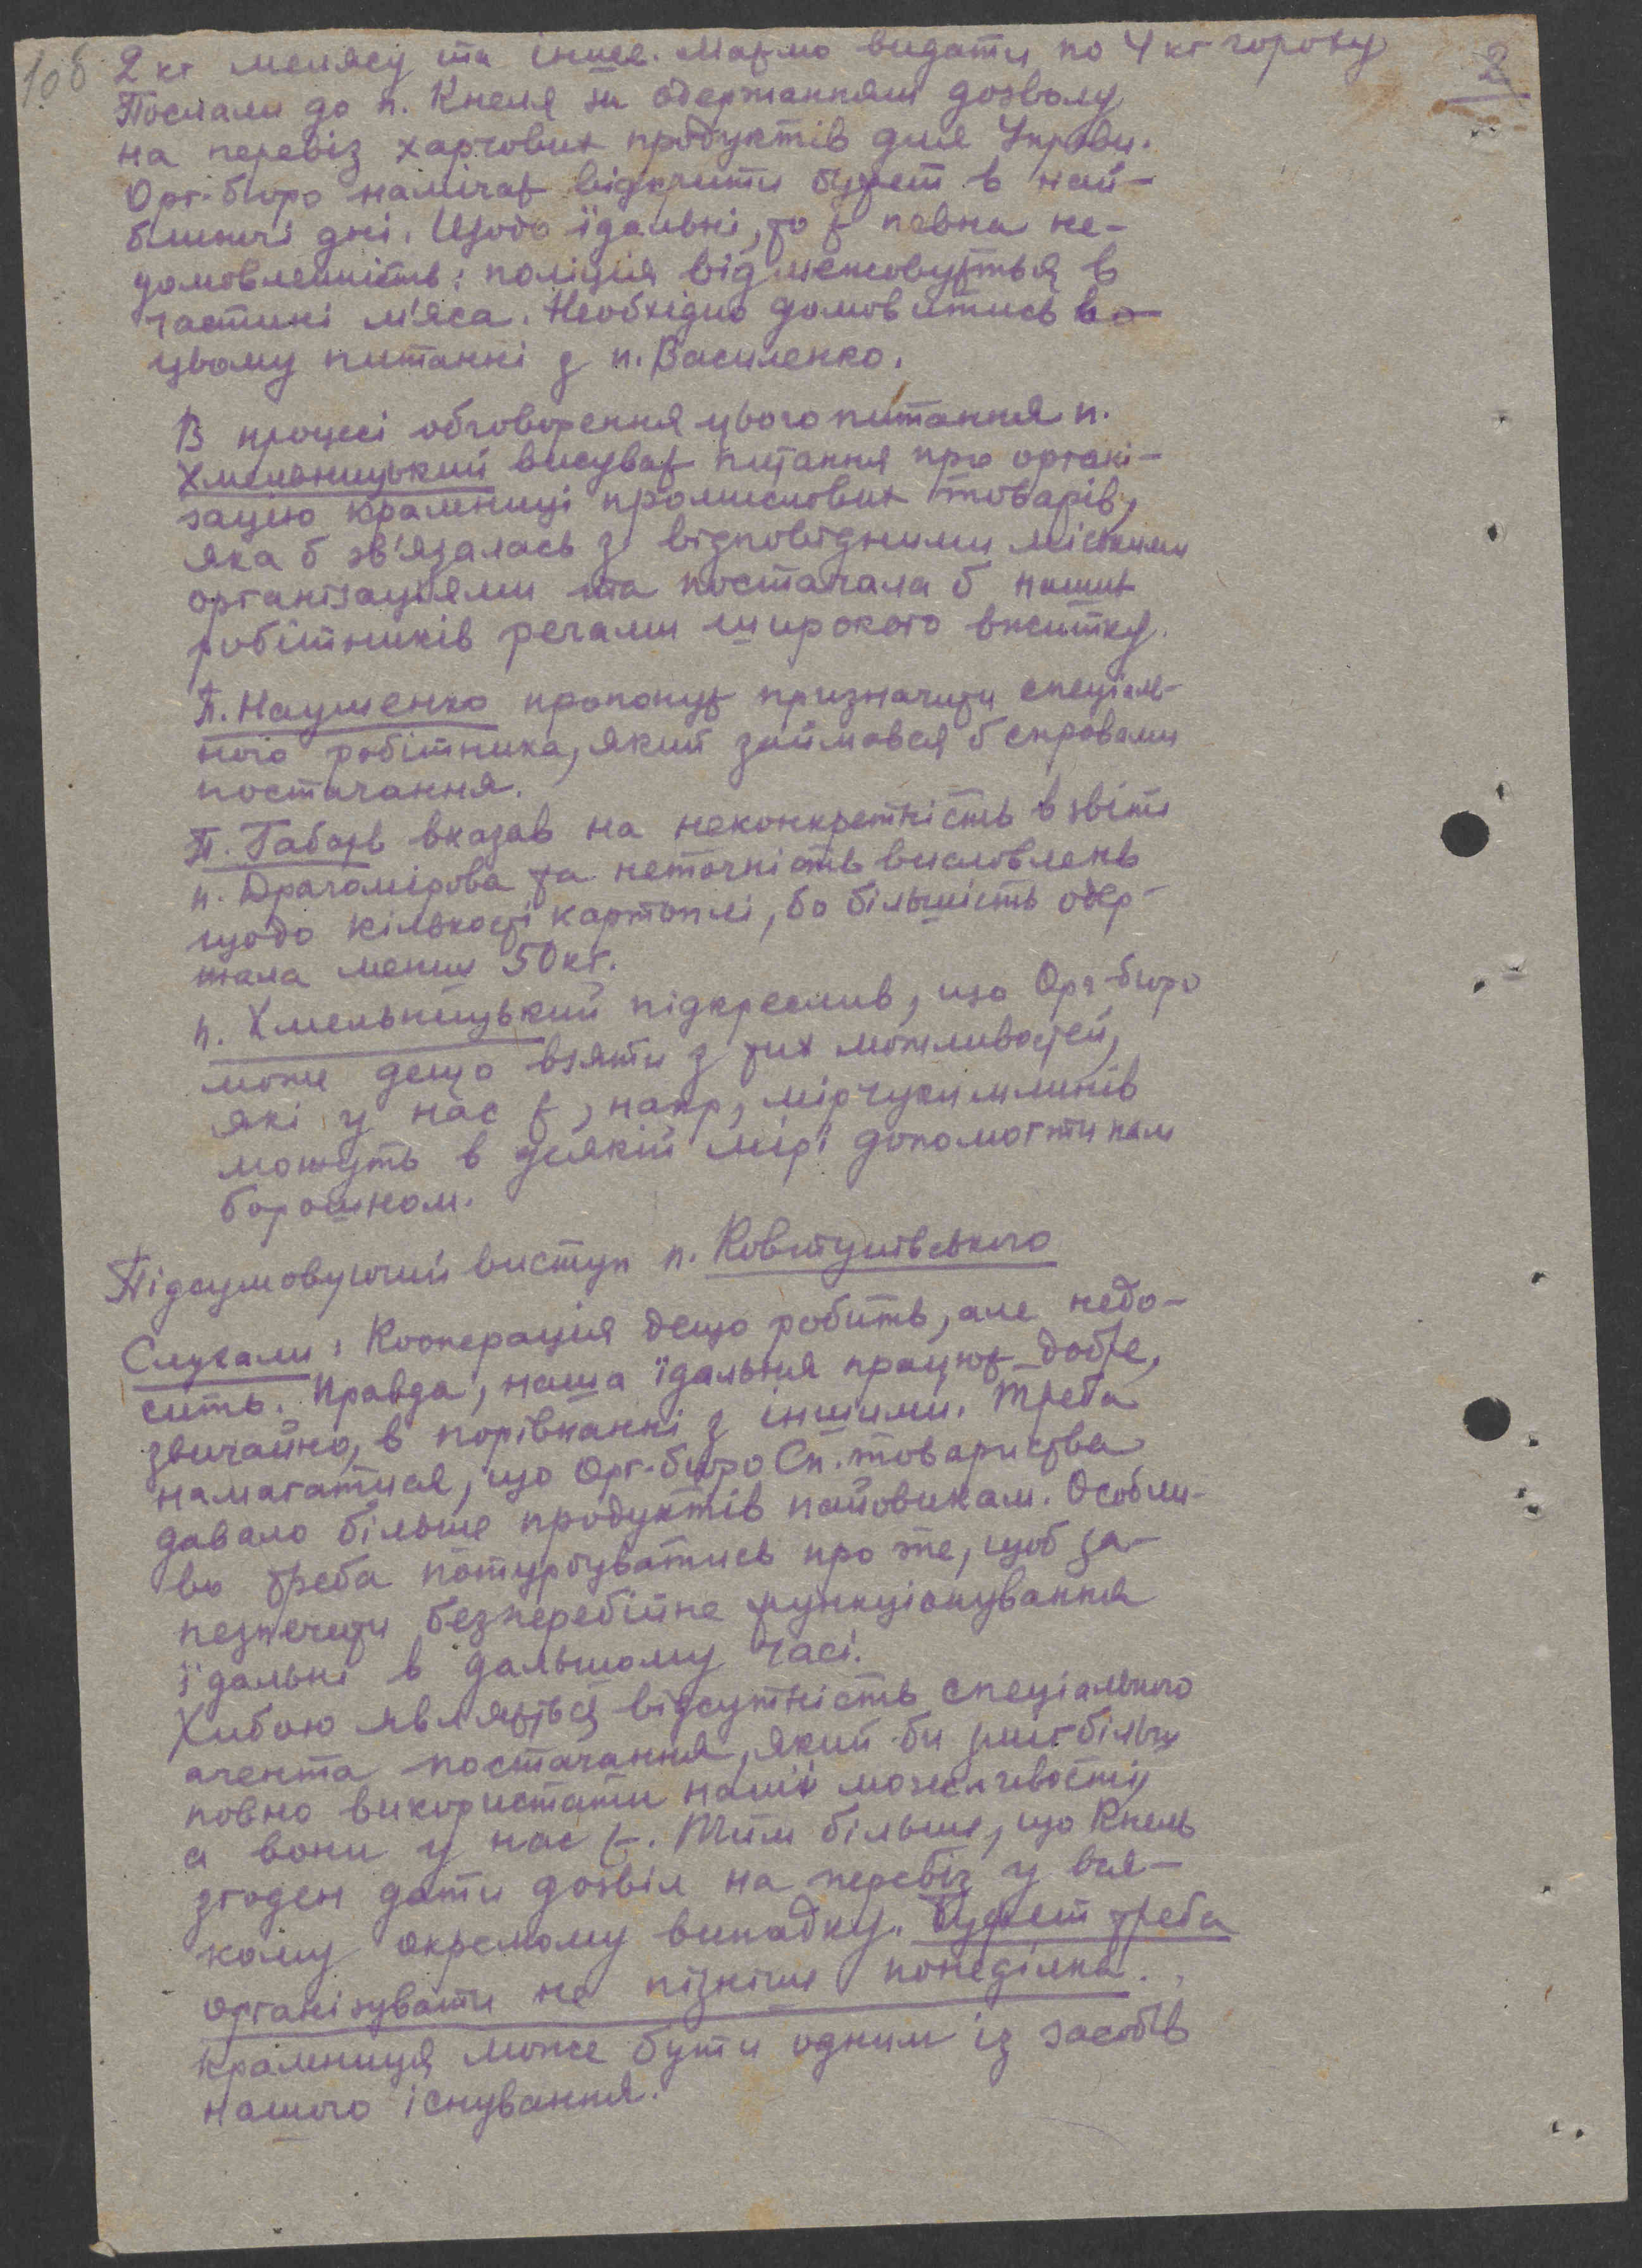 10б
2
2 кг мелясу та інше. Маємо видати по 4 кг гороху
Послали до п. Кнеля за одержанням дозволу
на перевіз харчових продуктів для Управи.
Орг-бюро намічає відкрити буфет в най-
ближчі дні. Щодо їдальні, то є певна не-
домовленність: поліція відмежовується в
частині м'яса. Необхідно домовитись в
цьому питанні з п. Василенко.
В процесі обговорення цього питання п.
Хмельницький висуває питання про органі-
зацію крамниці промислових товарів,
яка б зв'язалась з відповідними міськими
організаціями та постачала б наших
робітників речами широкого вжитку.
П. Науменко пропонує призначити спеціаль-
ного робітника, який займався б справами
постачання.
П. Габаєв вказав на неконкретність в звіті
п. Драгомірова та неточність висловлень
щодо кількості картоплі, бо більшість одер-
жала менш 50 кг.
п. Хмельницький підкреслив, що Орг-бюро
може дещо взяти з тих можливостей,
які у нас є, напр, мірчуки млинів
можуть в деякій мірі допомогти нам
борошном.
Підсумовуючий виступ п. Ковтунівського
Слухали: Кооперація дещо робить, але недо-
сить. Правда, наша їдальня працює добре,
звичайно, в порівнанні з іншими. Треба
намагатися, що Орг-бюро Сп. товариства
давало більше продуктів пайовикам. Особли-
во треба потурбуватись про те, щоб за-
пезпечити безперебійне функціонування
їдальні в дальшому часі.
Хибою являється відсутність спеціального
агента постачання, який би зміг більш
повно використати наші можливості,
а вони у нас є. Тим більше, що Кнель
згоден дати дозвіл на перевіз у вся-
кому окремому випадку. Буфет треба
організувати не пізніше понеділка.
Крамниця може бути одним із засобів
нашого існування.